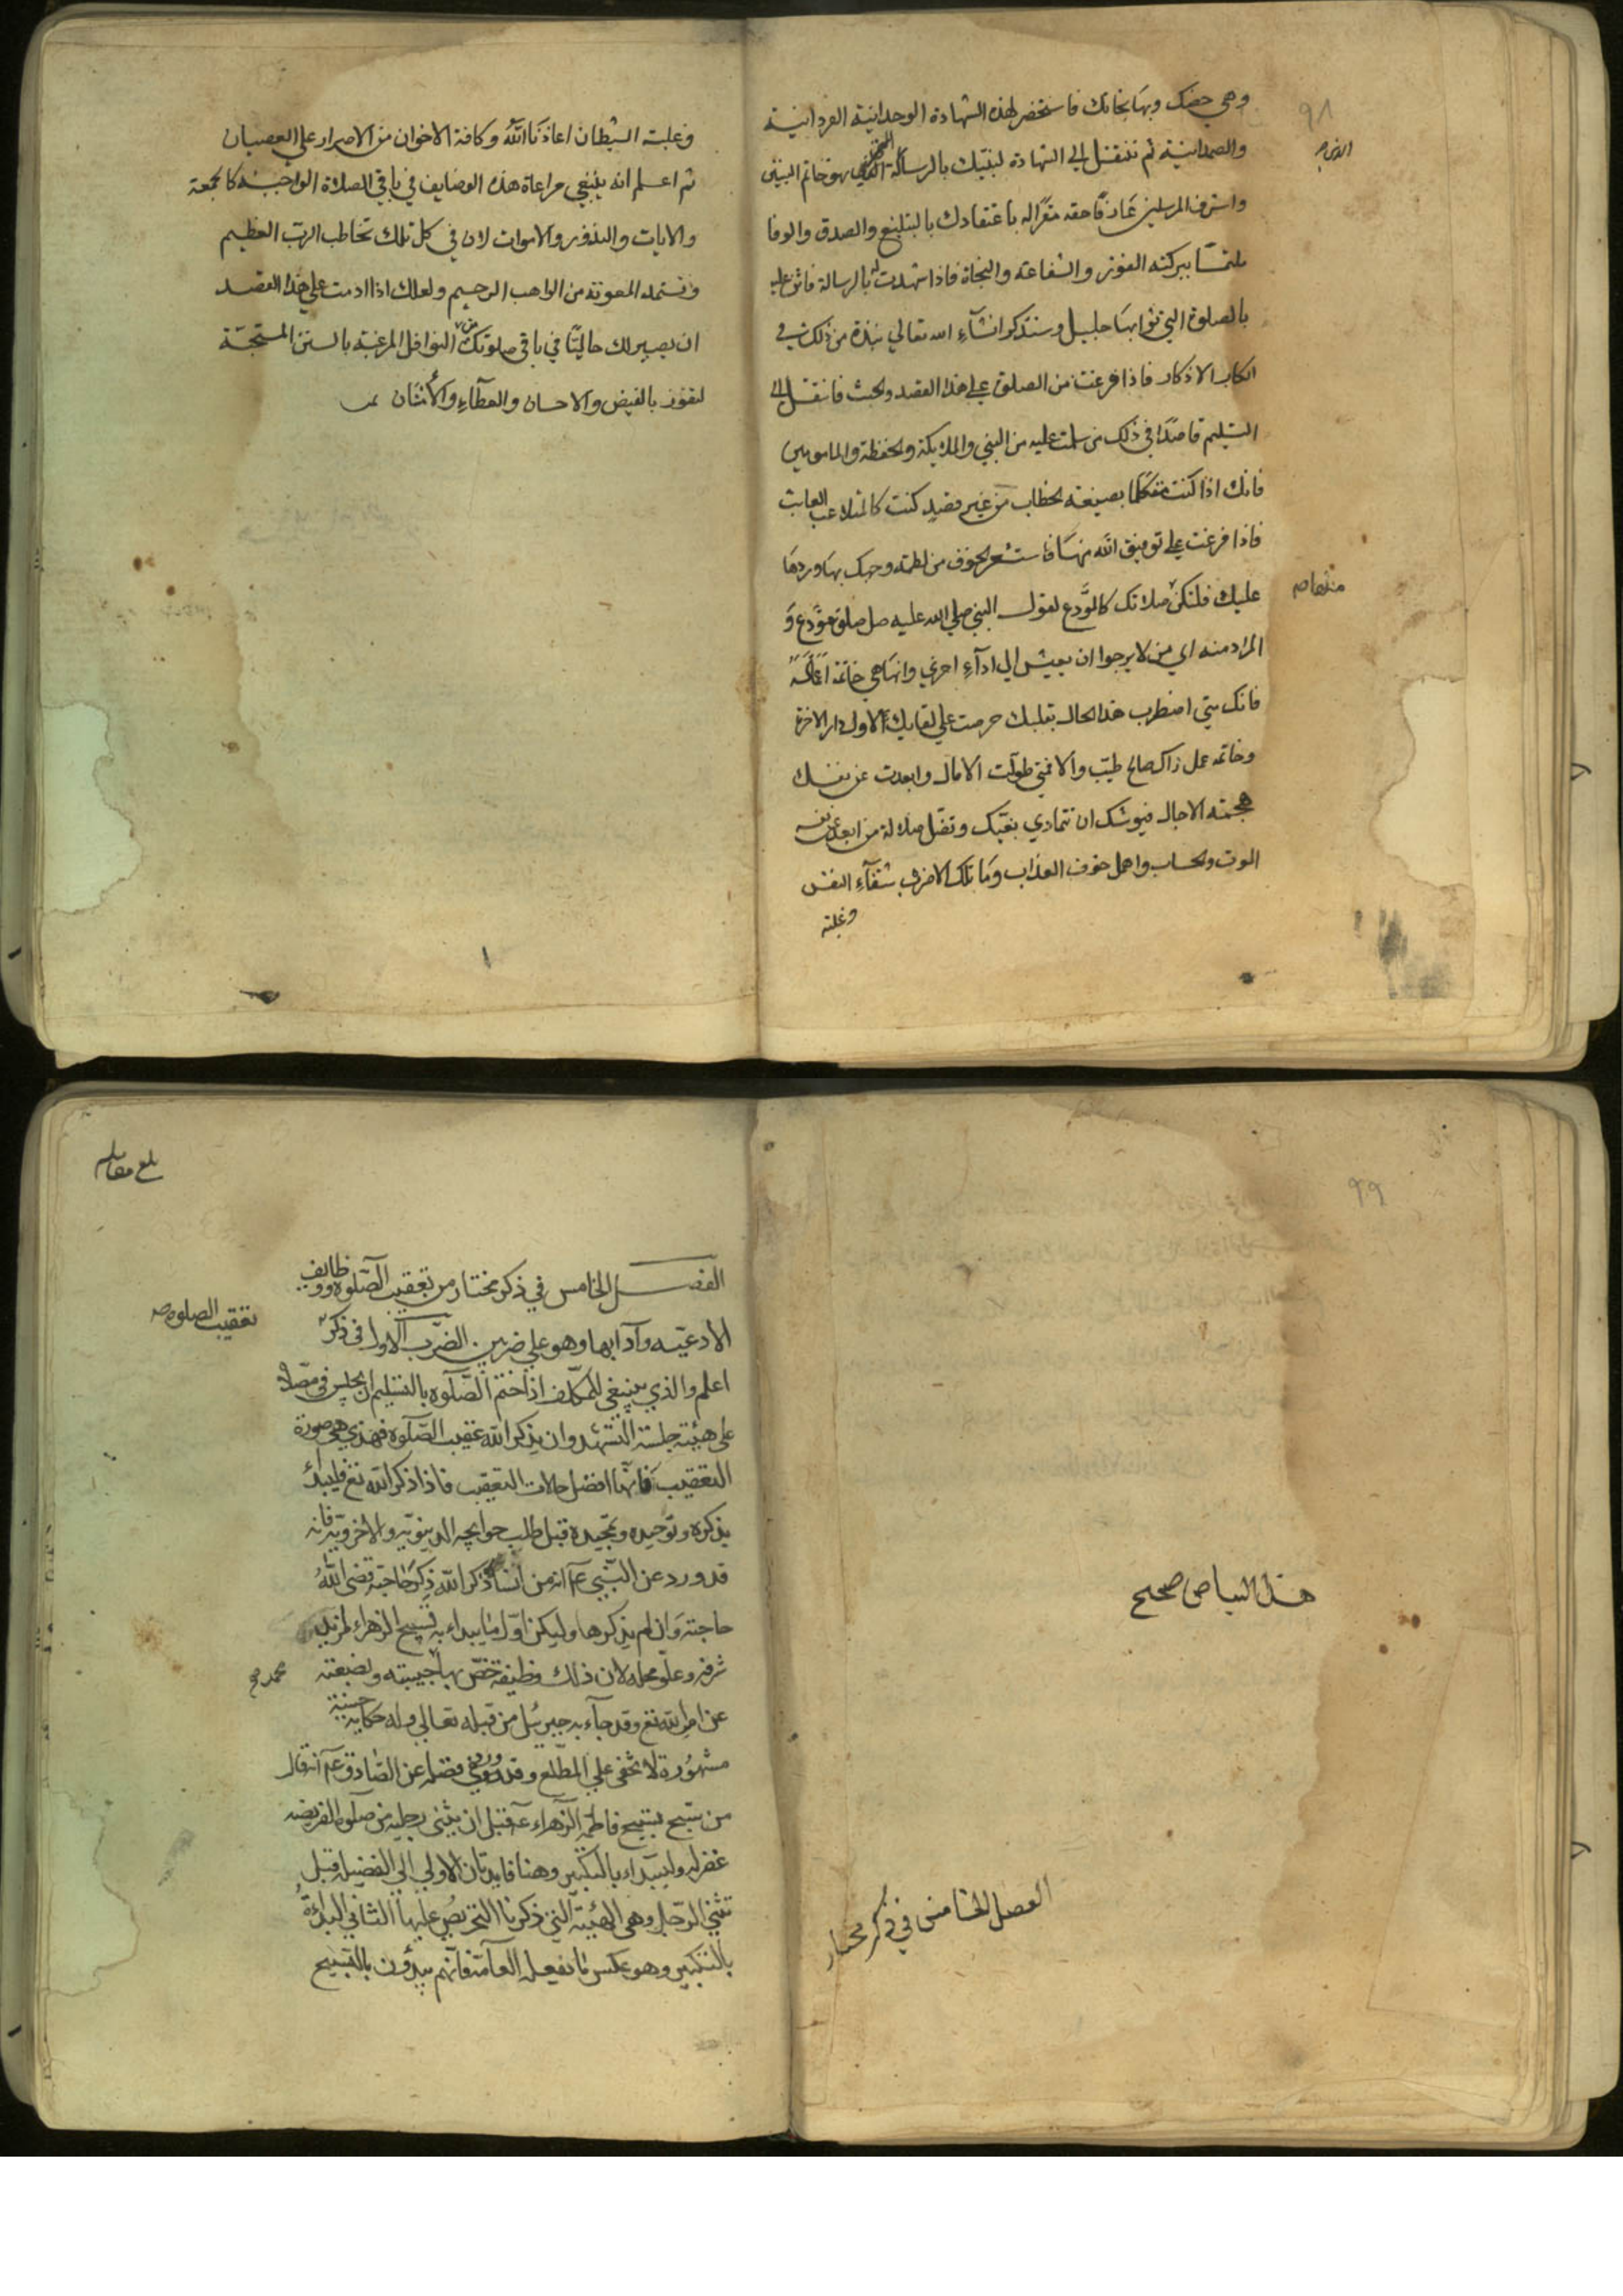 ٩٨
وهي حصنك وبها نجاتك فاستحضر لهذه الشهادة الوحدانية الفردانية
والصمدانية ثم تنتقل الي الشهادة لنبيك بالرسالة هو خاتم النبيين
واشرف المرسلين عارفا حقه مقرا له باعتقادك بالتبليغ والصدق والوفا
ملتمسا ببركته الفوز والشفاعة والنجاة فاذا شهدت له بالرسالة فاثن عليه
بالصلوة التي ثوابها جليل وسنذكر انشآء الله تعالي نبذة من ذلك في
الكتاب الاذكار فاذا فرغت من الصلوة علي هذا القصد والحث فانتقل الي
التسليم قاصدا في ذلك من سلمت عليه من النبي والملايكة والحفظة والمامومين
فانك اذا كنت متكلما بصيغة الخطاب من غير قصد كنت كالمتلاعب العابث
فاذا فرغت علي توفيق الله منها فاستشعر الخوف من لطمة وجهك بها وردها
عليك فلتكن صلاتك كالمودع لقول النبي صلي الله عليه صل صلوة مودع و
المراد منه اي من لا يرجوا ان يعيش الي ادآء اخري وانها هي خاتمة اعماله
فانك متي اضطرب هذا الحال بقلبك حرصت علي لقايك الاول دار الاخرة
وخاتمة عمل زاك صالح طيب والا فمتي طولت الامال وابعدت عن نفسك
هجمة الاجال فيوشك ان تتمادي بغيك وتضل ضلالة من ابعد عن نفسه
الموت والحساب واهمل خوف العذاب وما تلك الا من شقآء النفس
وغلبة
وغلبة الشيطان اعاذنا الله وكافة الاخوان من الاصرار علي العصيان
ثم اعلم انه ينبغي مراعاة هذه الوضايف في باقي الصلاة الواجبة كالجمعة
والايات والنذور والاموات لان في كل تلك تخاطب الرب العظيم
وتستمد المعونة من الواهب الرحيم ولعلك اذا ادمت علي هذا القصد
ان يصير لك حاليا في باقي صلوتك من النوافل المرغبة بالسنن المستحبة
لتفوز بالفيض والاحسان والعطآء والأمتنان
٩٩
هذا البياض صحيح
الفصل الخامس في ذكر مختار
بلغ مقابله
الفصل الخامس في ذكر مختار من تعقيب الصلوة ووظايف
تعقيب الصلوه
الادعيه وآدابها وهو علي ضربين الضرب الاول في ذكر
اعلم والذي ينبغي للمكلف اذا ختم الصلوه بالتسليم ان يجلس في مصلاه
علي هيئة جلسة التشهد وان يذكر الله عقيب الصلوه فهذي هي صورة
التعقيب فانها افضل حالات التعقيب فاذا ذكر الله تع فليبدأ
بذكره وتوحيده وتمجيده قبل طلب حوايجه الدينويه والاخرويه فانه
قد ورد عن النبي عم انه من انسأه ذكر الله ذكر حاجته قضي الله
حاجته وان لم يذكرها وليكن اول ما يبداء به تسبيح الزهراء لمزيد
شرفه وعلو محله لان ذلك وظيفة خص بها حبيبته وبضعته
محمد
عن امر الله تع وقد جآء به جبرئيل من قبله تعالي وله حكاية حسنة
مشهورة لا تخفي علي المطلع وقد روي في فضله عن الصادق عم انه قال
من سبح تسبيح فاطمة الزهراء عه قبل ان يثني رجليه من صلوه الفريضه
غفر له وليبتداء بالتكبير وهنا فايدتان الاولي الي الفضيله قبل
تثني الرجل وهي الهيئة التي ذكرنا التحريض عليها الثاني البدائة
بالتكبير وهو عكس ما تفعله العآمة فانهم يبدؤن بالتسبيح